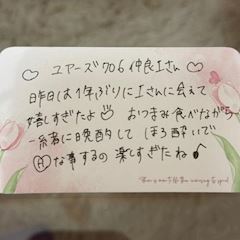 ♡ ユアーズ706 仲良Iさん ♡
昨日は1年ぶりにIさんに会えて
嬉しすぎたよ♡ おつまみ食べながら
一緒に晩酌して ほろ酔いで
Ⓗな事するの 楽しすぎたね♪